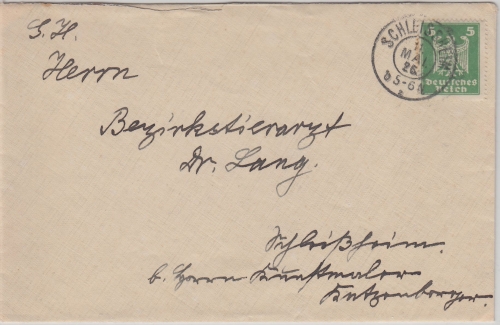 S. H.
Herrn
Bezirkstierarzt
Dr. Lang.
Schleißheim.
b. Herrn Kunstmaler
Katzenberger.
SCHLEISSHEIM
MAI
26
5-6
5 5
Deutsches
Reich